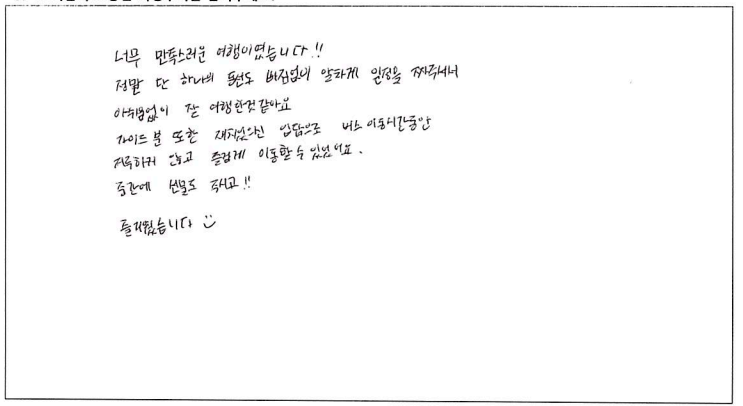 너무 만족스러운 여행이였습니다!!
정말 단 하나의 동선도 버짐없이 알차게 일정을 짜주셔서
아쉬움없이 잘 여행한것같아요
가이드 분 또한 재치있으신 입담으로 버스 이동시간동안
지루하지 않고 즐겁게 이동할 수 있었어요.
중간에 선물도 주시고!!
즐거웠습니다 :)